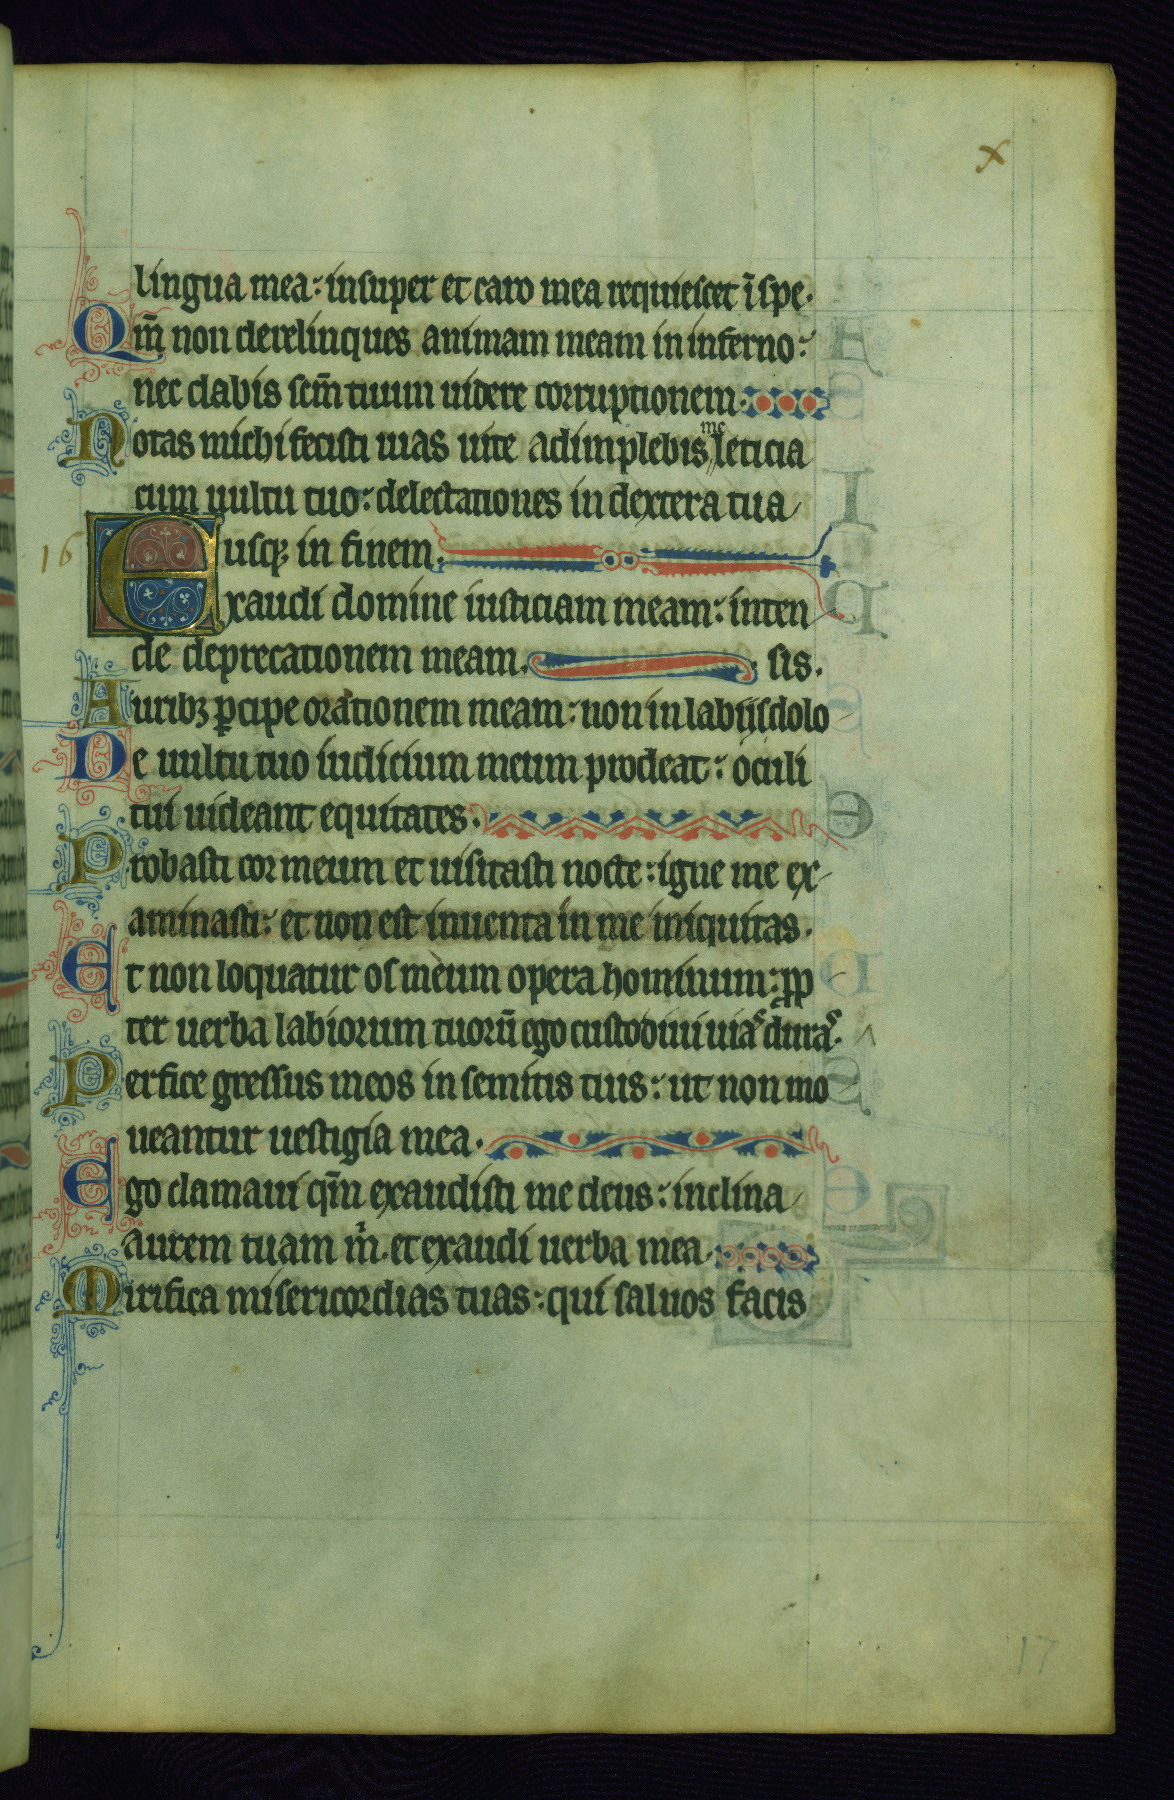 x
lingua mea: insuper et caro mea requiescet ī spe.
Qm̄ non derelinques animam meam in inferno:
nec dabis scm̄ tuum uidere corruptionem.
Notas michi fecisti uias uite adimplebis me leticia
cum uultu tuo: delectationes in dextera tua
usq; in finem.
16
Exaudi domine iusticiam meam: inten
de deprecationem meam. sis.
Auribꝫ ꝑcipe orationem meam: non in labijs dolo
De uultu tuo iudicium meum prodeat: oculi
tui uideant equitates.
Probasti cor meum et uisitasti nocte: igne me ex
aminasti: et non est inuenta in me iniquitas.
Et non loquatur os meum opera hominum: ꝓp
ter uerba labiorum tuorū ego custodiui uias duras.
Perfice gressus meos in semitis tuis: ut non mo
ueantur uestigia mea.
Ego clamaui qm̄ exaudisti me deus: inclina
aurem tuam m̄. et exaudi uerba mea.
Mirifica misericordias tuas: qui saluos facis
17